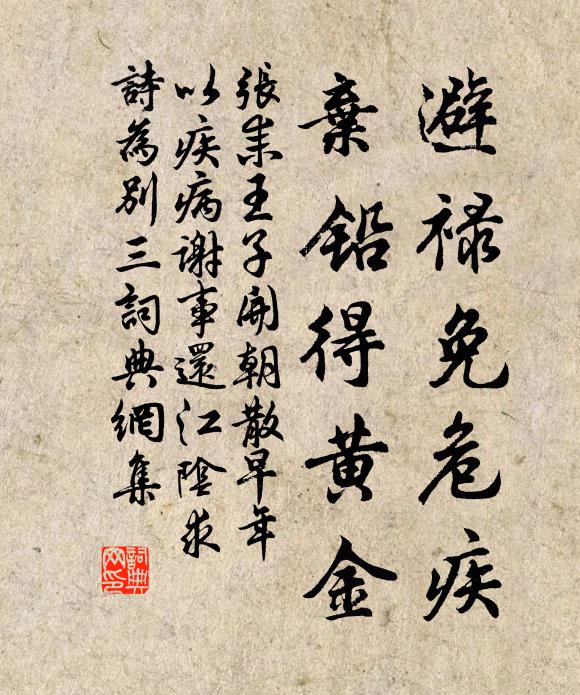 避禄免危疾
棄鉛得黄金
張耒王子開朝散早年
以疾病謝事還江陰求
詩為別三詞典網集
詞典
网印